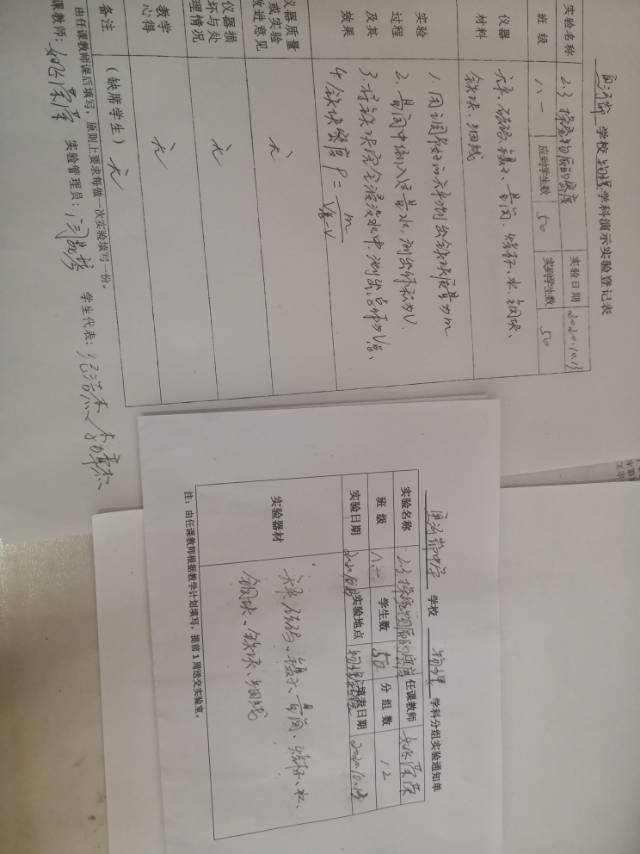 学校 物理 学科演示实验登记表
实验名称 2.3 探究物质的密度 实验日期
班 级 八一 应到学生数 50 实到学生数 50
仪器材料 天平、砝码、镊子、量筒、烧杯、水、铜块、
铁块、细线
实验过程及其效果
1. 用调好的天平测出铁块质量为m
2. 量筒中倒入适量水,测出体积为V
3. 将铁块完全浸没水中,测出总体积为V总、
4. 铁块密度 ρ = m / V总-V
仪器质量或实验改进意见 无
仪器损坏与处理情况 无
教学心得 无
备注 (缺席学生) 无
由任课教师课后填写,原则上要求每做一次实验填写一份。
课教师: 实验管理员: 学生代表:
学校 物理 学科分组实验通知单
实验名称 2.3 探究物质的密度 任课教师
班 级 学生数 50 分 组 数 12
实验日期 实验地点 填表日期
实验器材 天平、砝码、镊子、量筒、烧杯、水、
铜块、铁块、细线
注:由任课教师根据教学计划填写,提前1周送交实验室。